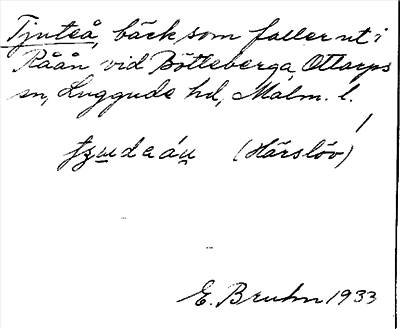 Tjuteå, bäck som faller ut i
Råån vid Bötteberga, Ottarps
sn, Luggude hd, Malm. l.
tʒudeáu (Härslöv)
E. Bruhn 1933